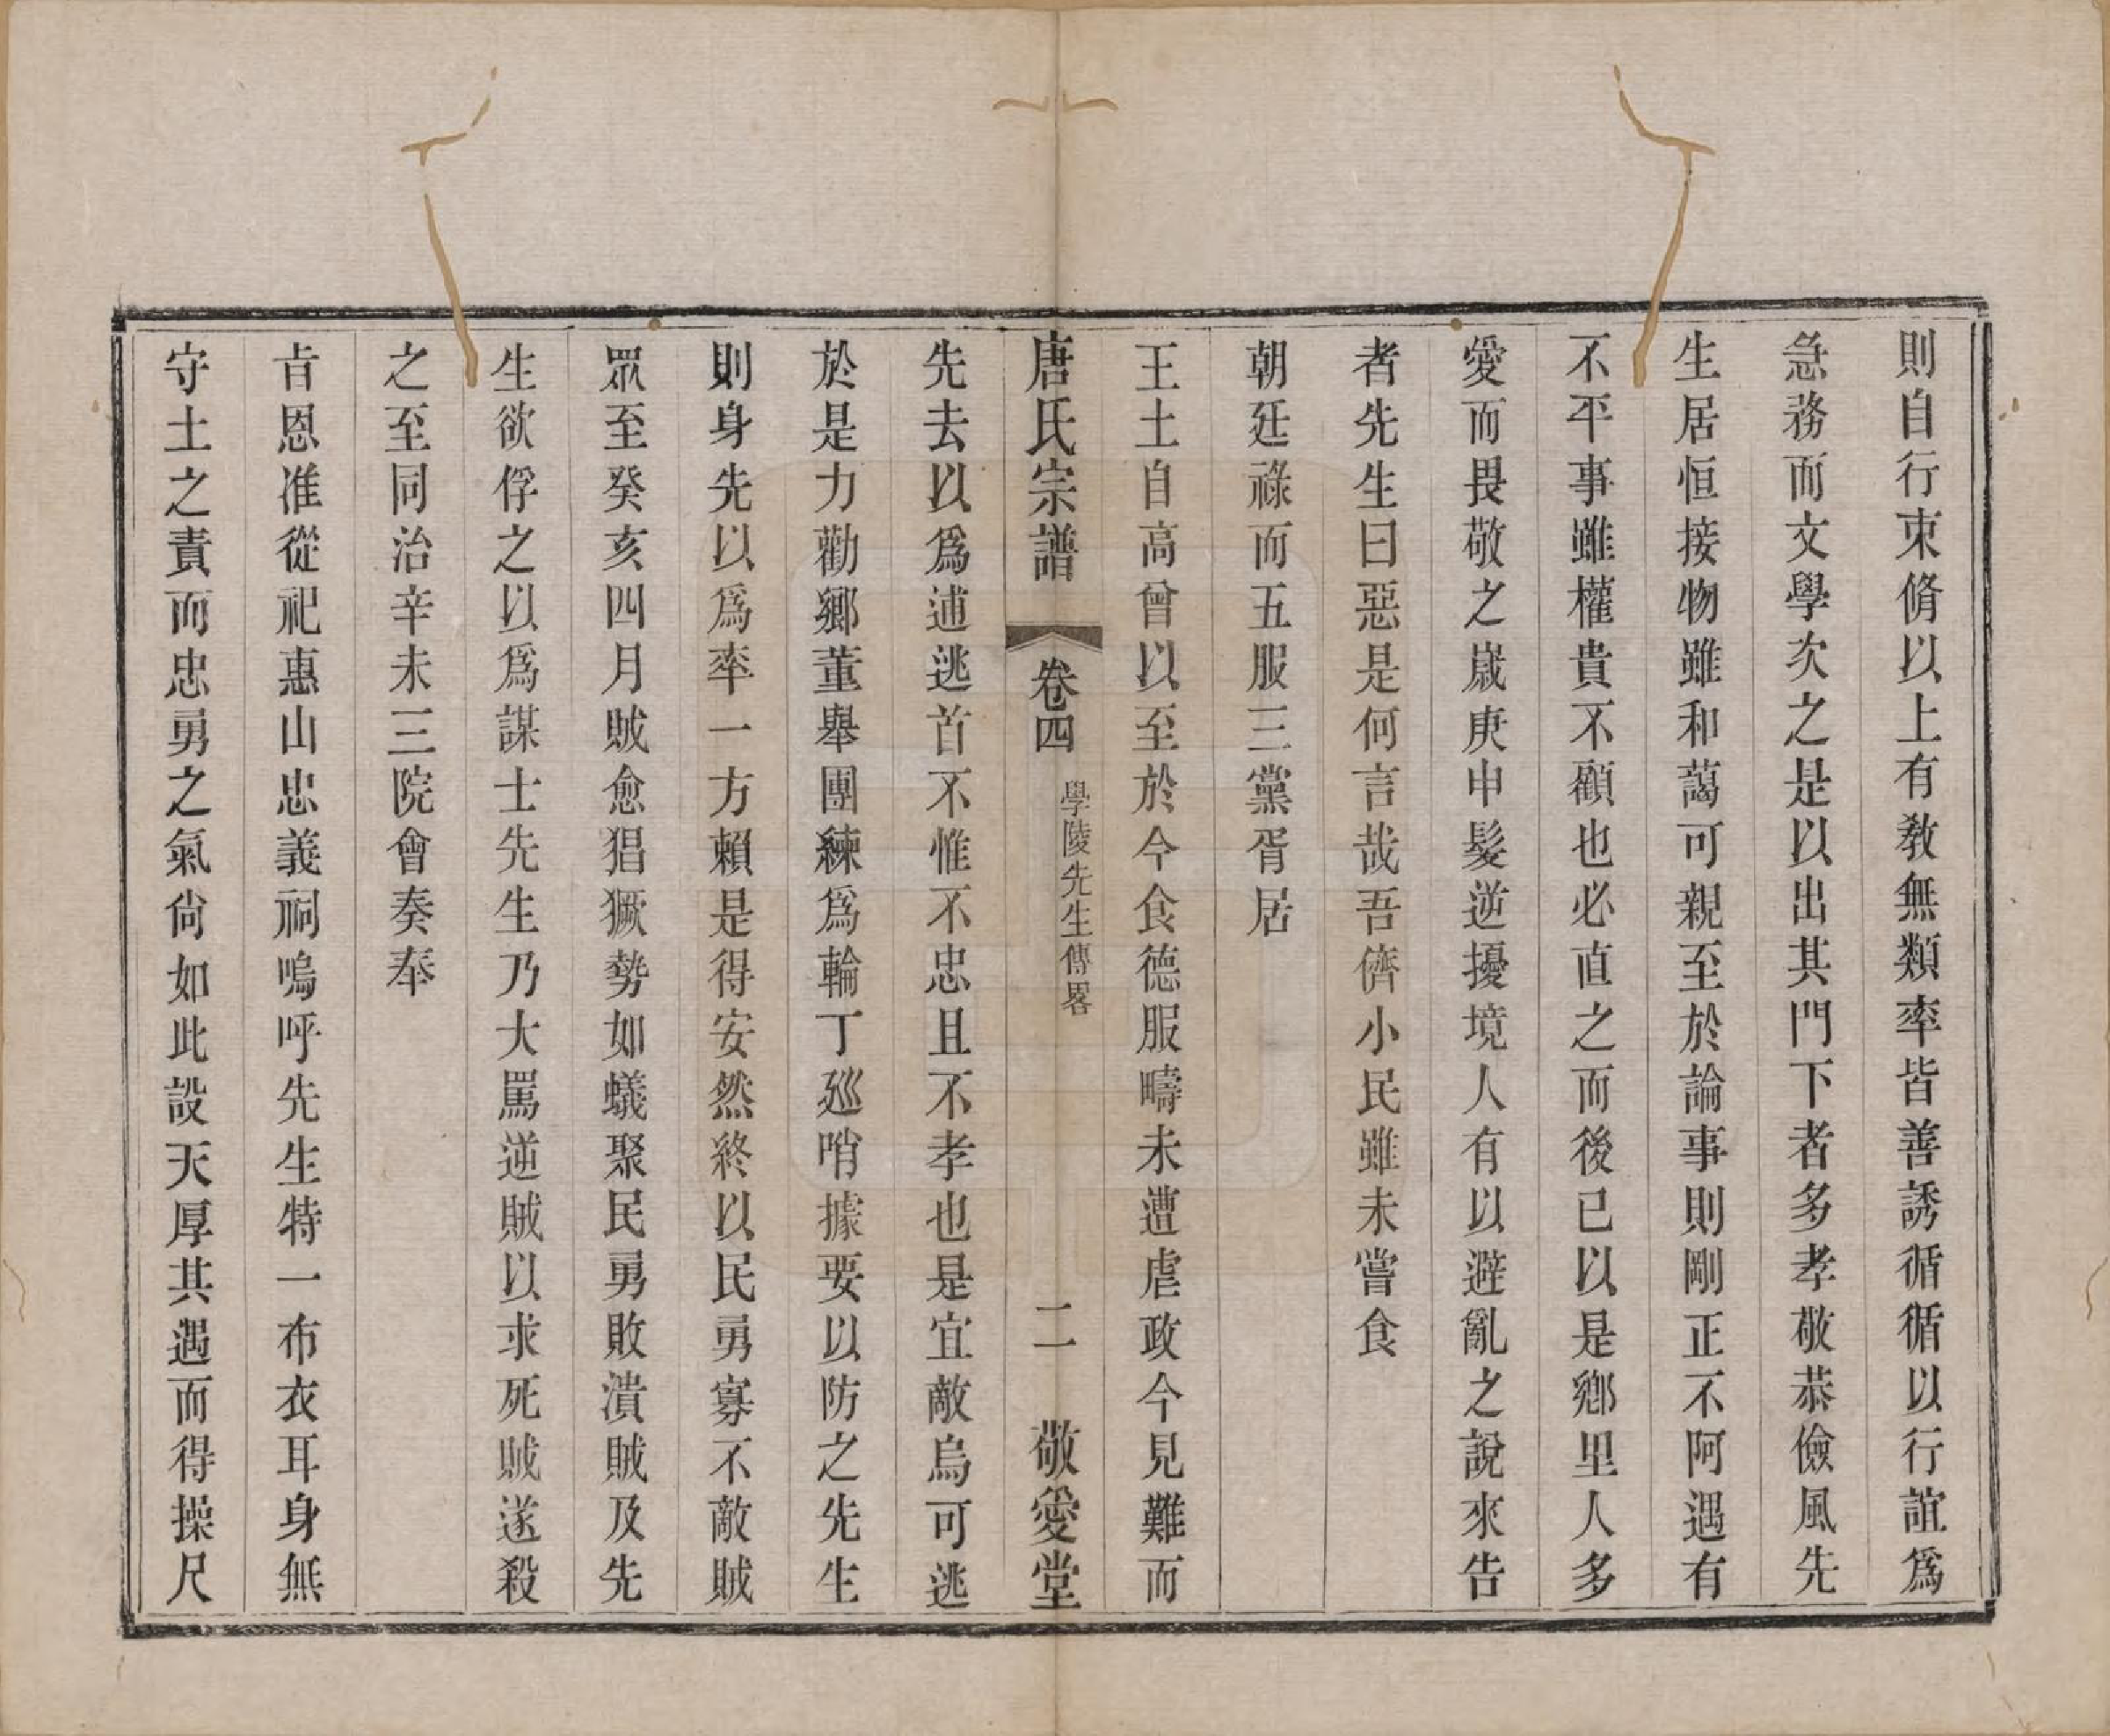 則自行束脩以上有敎無類率皆善誘循循以行誼爲
急務而文學次之是以出其門下者多孝敬恭儉風先
生居恒接物雖和藹可親至於論事則剛正不阿遇有
不平事雖權貴不顧也必直之而後已以是鄕里人多
愛而畏敬之歲庚申髮逆擾境人有以避亂之說來告
者先生曰惡是何言哉吾儕小民雖未嘗食
朝廷祿而五服三黨胥居
王土自高曾以至於今食德服疇未遭虐政今見難而
唐氏宗譜 卷四 學陵先生傳畧 二 敬愛堂
先去以爲逋逃首不惟不忠且不孝也是宜敵烏可逃
於是力勸鄉董舉團練爲輪丁廵哨據要以防之先生
則身先以爲率一方賴是得安然終以民勇寡不敵賊
眾至癸亥四月賊愈猖獗勢如蟻聚民勇敗潰賊及先
生欲俘之以爲謀士先生乃大罵逆賊以求死賊遂殺
之至同治辛未三院會奏奉
㫖恩准從祀惠山忠義祠嗚呼先生特一布衣耳身無
守土之責而忠勇之氣尙如此設天厚其遇而得操尺